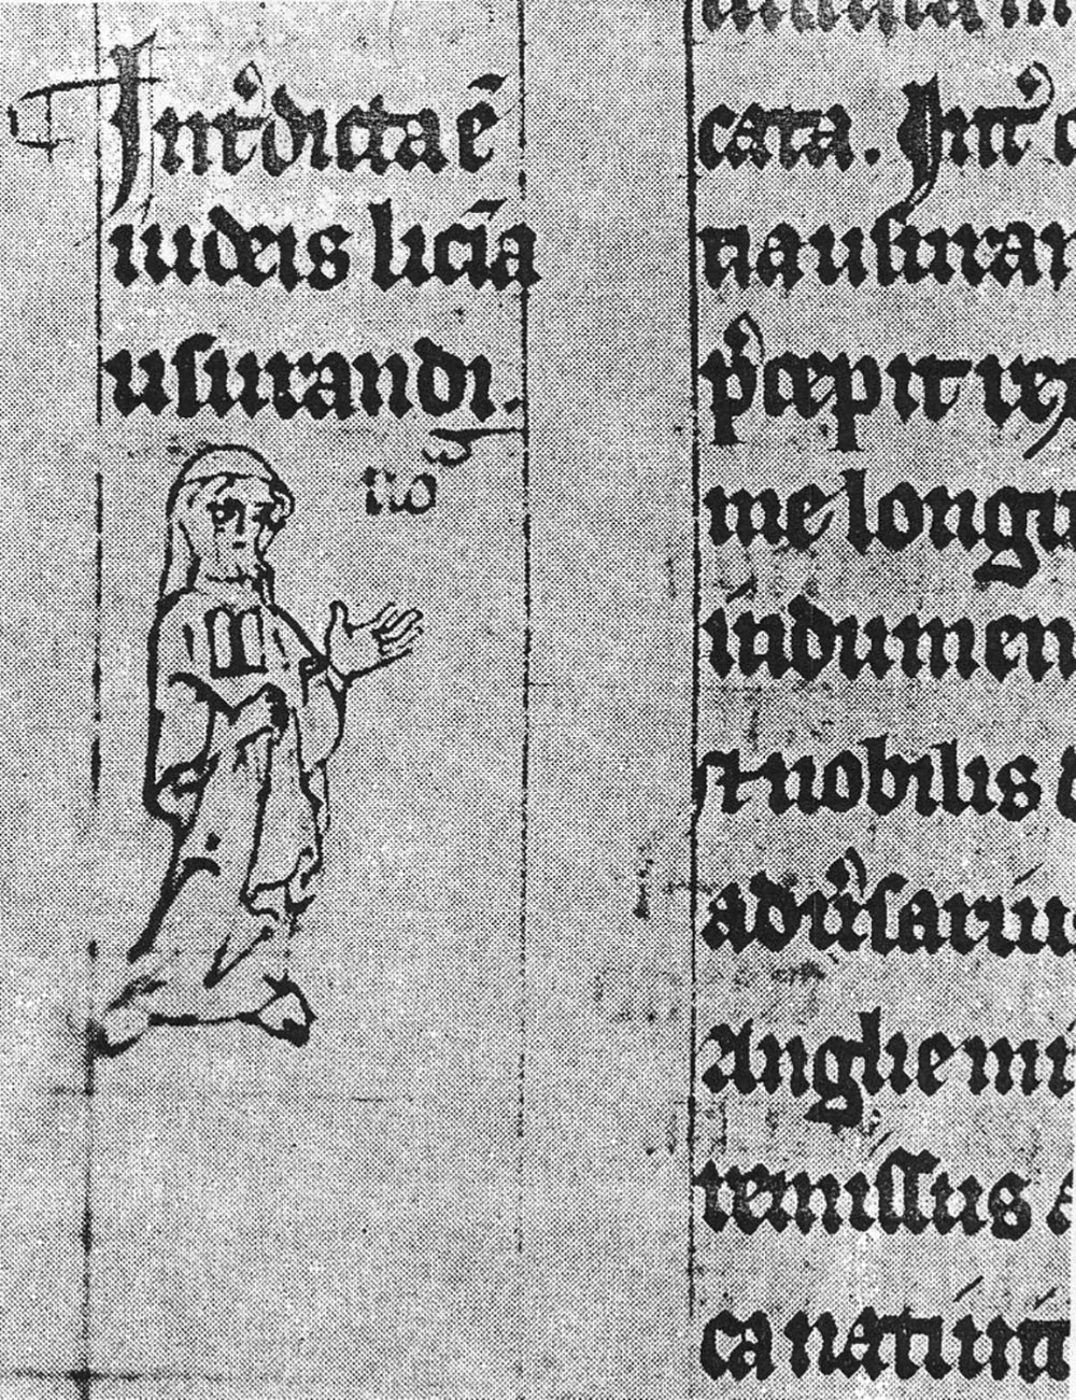 Int'dicta ē
iudeis licīa
usurandi.
cata. Int'
tia usurar
p'cepit rex
me longu
indumen
et nobilis
aduersariu
Anglie mi
remissus
ca natiuit